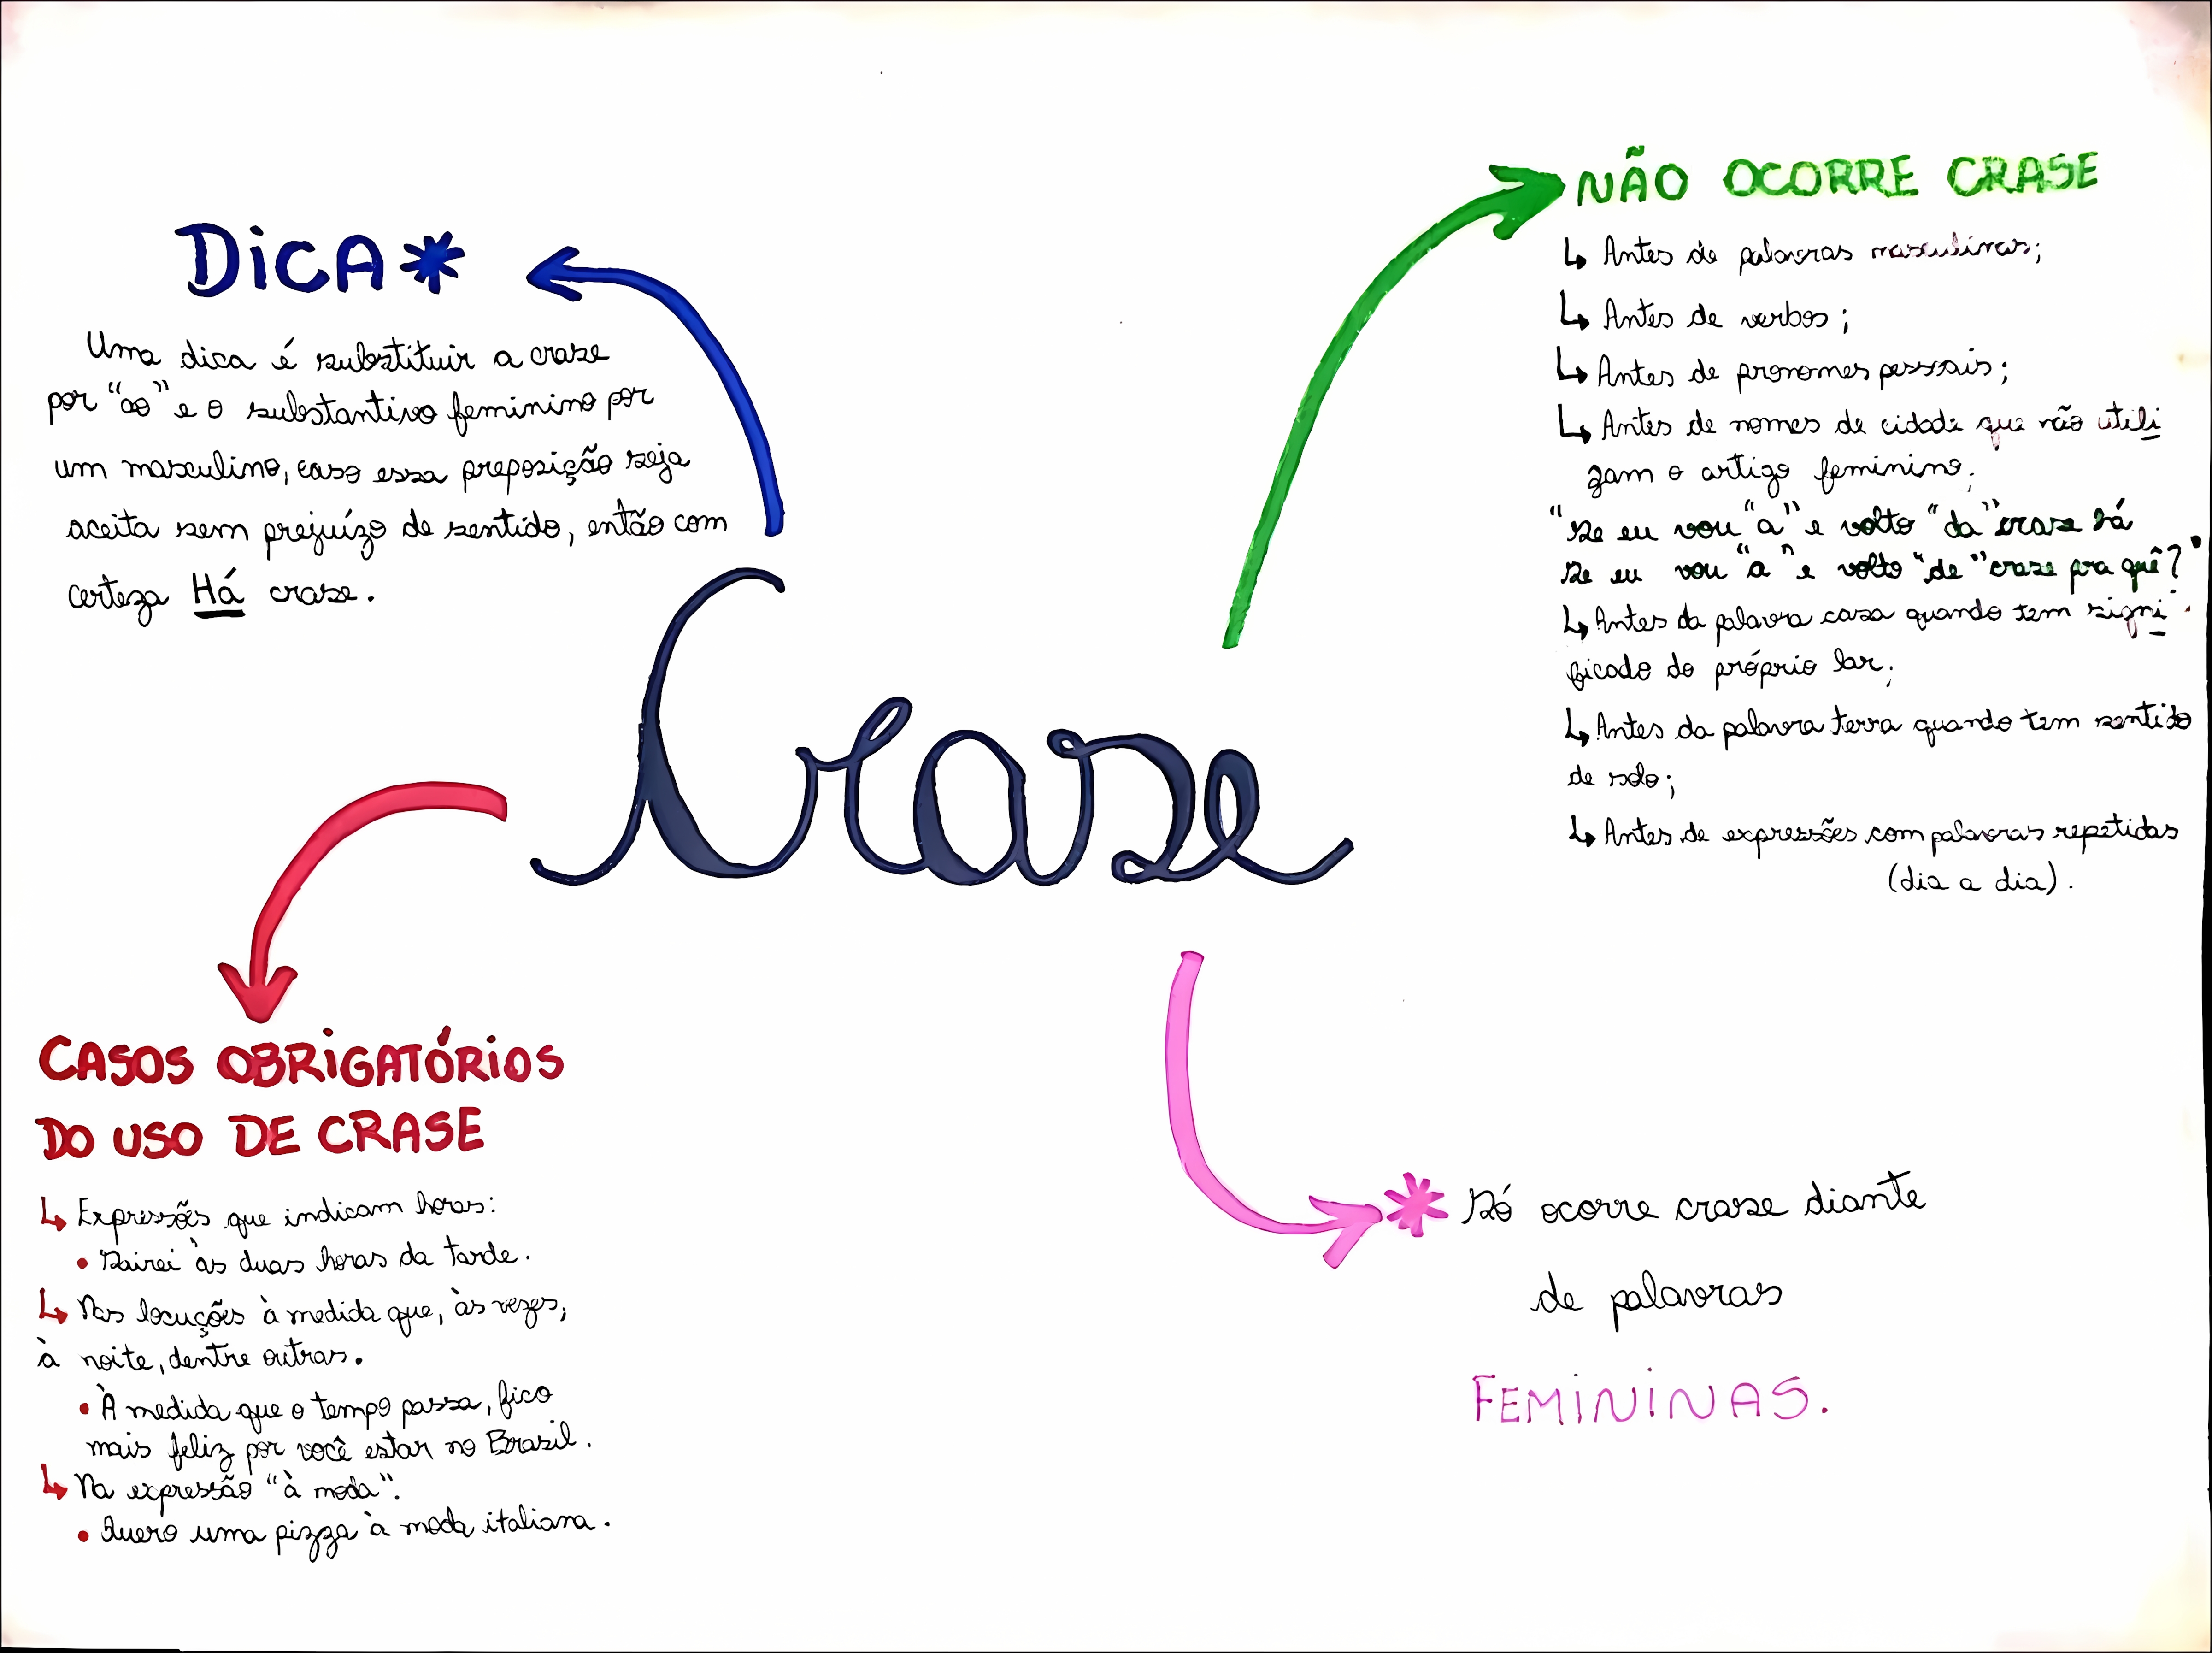 DICA*
Uma dica é substituir a crase
por "ao" e o substantivo feminino por
um masculino, caso essa preposição seja
aceita sem prejuízo de sentido, então com
certeza Há crase.
NÃO OCORRE CRASE
↳ Antes de palavras masculinas;
↳ Antes de verbos;
↳ Antes de pronomes pessoais;
↳ Antes de nomes de cidade que não utili
zam o artigo feminino;
"Se eu vou "a" e volto "da" crase há
Se eu vou "a" e volto "de" crase pra quê?"
↳ Antes da palavra casa quando tem signi
ficado do próprio lar;
↳ Antes da palavra terra quando tem sentido
de solo;
↳ Antes de expressões com palavras repetidas
(dia a dia).
Crase
CASOS OBRIGATÓRIOS
DO USO DE CRASE
↳ Expressões que indicam horas:
• Sairei às duas horas da tarde.
↳ Nas locuções à medida que, às vezes,
à noite, dentre outras.
• À medida que o tempo passa, fico
mais feliz por você estar no Brasil.
↳ Na expressão "à moda".
• Quero uma pizza à moda italiana.
* Só ocorre crase diante
de palavras
FEMININAS.